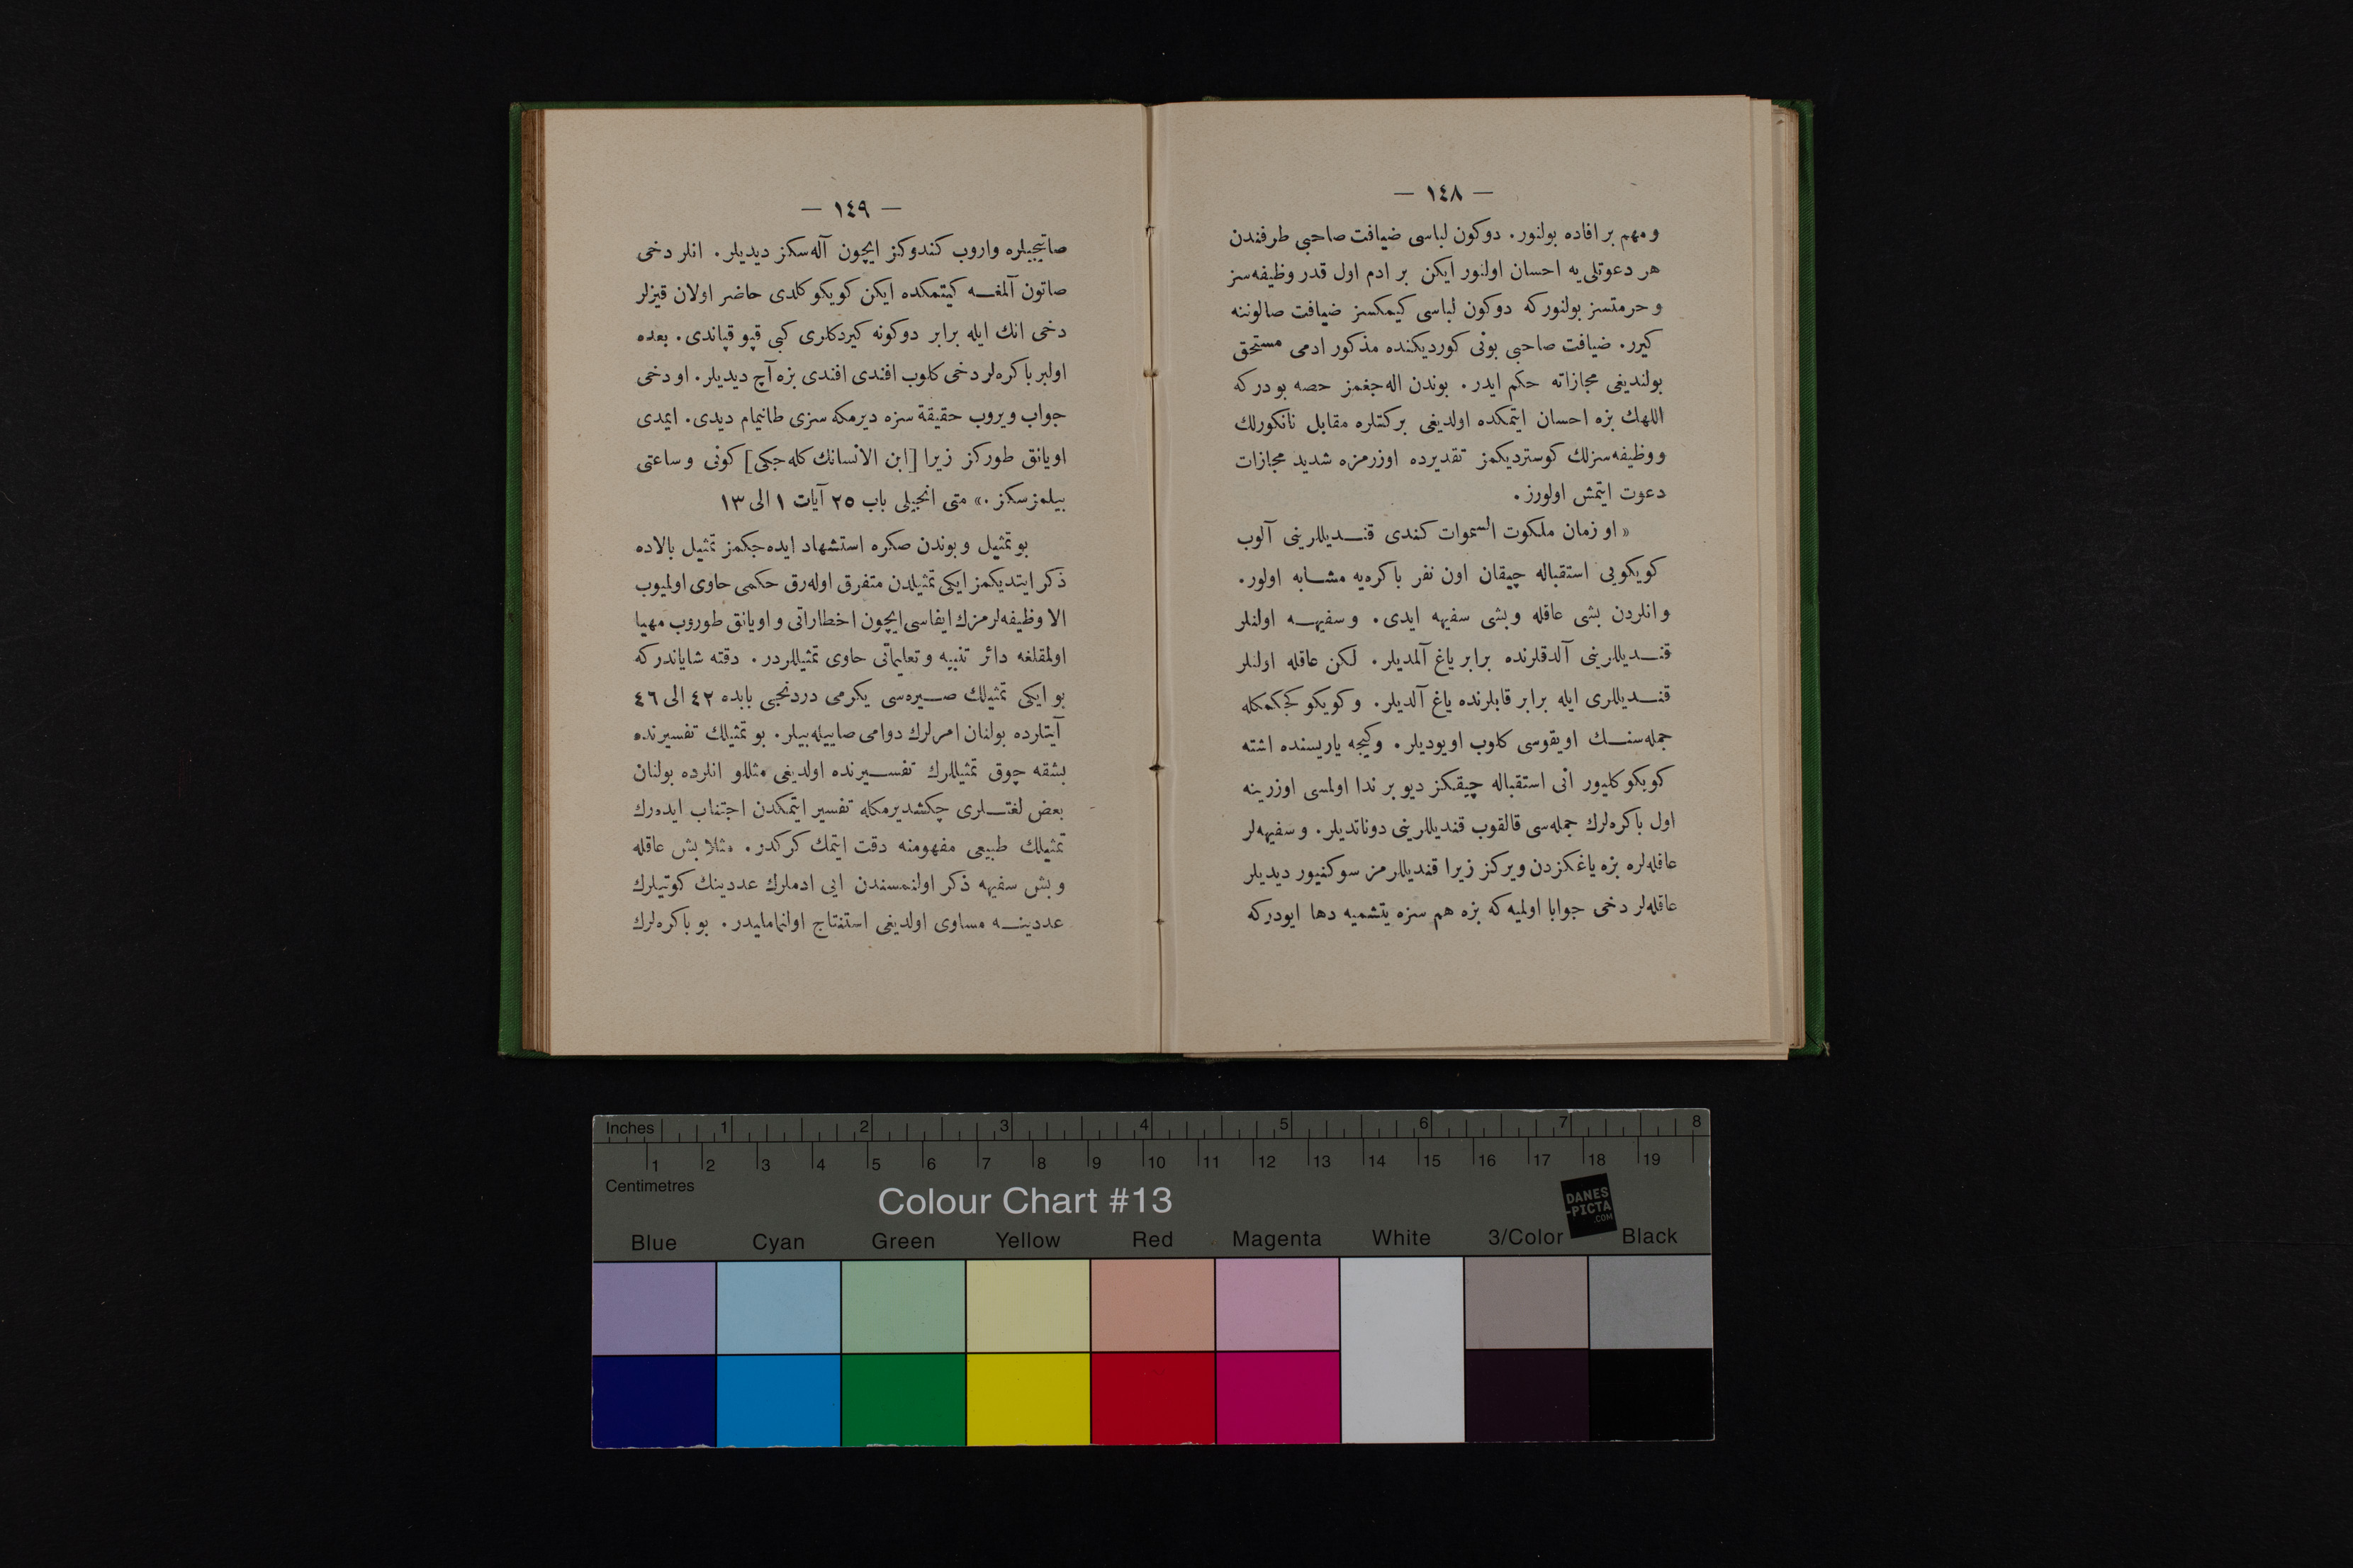 — ١٤٨ —
ومهم بر افاده بولنور. دوكون لباسى ضيافت صاحبى طرفندن
هر دعوتلى‌يه احسان اولنور ايكن بر ادم اول قدر وظيفه‌سز
وحرمتسز بولنوركه دوكون لباسى كيمكسز ضيافت صالوننه
كيرر. ضيافت صاحبى بونى كورديكنده مذكور ادمى مستحق
بولنديغى مجازاته حكم ايدر. بوندن اله‌جغمز حصه بودركه
اللهك بزه احسان ايتمكده اولديغى بركتلره مقابل نانكورلك
ووظيفه‌سزلك كوسترديكمز تقديرده اوزرمزه شديد مجازات
دعوت ايتمش اولورز.
«او زمان ملكوت السموات كندى قنديللرينى آلوب
كويكويى استقباله چيقان اون نفر باكره‌يه مشابه اولور.
وانلردن بشى عاقله وبشى سفيهه ايدى. وسفيهه اولنلر
قنديللرينى آلدقلرنده برابر ياغ آلمديلر. لكن عاقله اولنلر
قنديللرى ايله برابر قابلرنده ياغ آلديلر. وكويكو كجكمكله
جمله‌سنك اويقوسى كلوب اويوديلر. وكيجه ياريسنده اشته
كويكو كليور انى استقباله چيقكز ديو بر ندا اولمسى اوزرينه
اول باكره‌لرك جمله‌سى قالقوب قنديللرينى دوناتديلر. وسفيهه‌لر
عاقله‌لره بزه ياغكزدن ويركز زيرا قنديللرمز سوكنيور ديديلر
عاقله‌لر دخى جوابا اولميه‌كه بزه هم سزه يتشميه دها ايودركه
— ١٤٩ —
صاتيجيلره واروب كندوكز ايچون آله‌سكز ديديلر. انلر دخى
صاتون آلمغه كيتمكده ايكن كويكو كلدى حاضر اولان قيزلر
دخى انك ايله برابر دوكونه كيردكلرى كبى قپو قپاندى. بعده
اولبر باكره‌لر دخى كلوب افندى افندى بزه آچ ديديلر. او دخى
جواب ويروب حقيقة سزه ديرمكه سزى طانيمام ديدى. ايمدى
اويانق طوركز زيرا [ابن الانسانك كله‌جكى] كونى وساعتى
بيلمزسكز.» متى انجيلى باب ٢٥ آيات ١ الى ١٣
بو تمثيل وبوندن صكره استشهاد ايده‌جكمز تمثيل بالاده
ذكر ايتديكمز ايكى تمثيلدن متفرق اوله‌رق حكمى حاوى اولميوب
الا وظيفه‌لرمزك ايفاسى ايچون اخطاراتى واويانق طوروب مهيا
اولمقلغه دائر تنبيه وتعليماتى حاوى تمثيللردر. دقته شاياندركه
بو ايكى تمثيلك صيره‌سى يكرمى دردنجى بابده ٤٢ الى ٤٦
آيتلرده بولنان امرلرك دوامى صاييله‌بيلر. بو تمثيلك تفسيرنده
بشقه چوق تمثيللرك تفسيرنده اولديغى مثللو انلرده بولنان
بعض لغتلرى چكشديرمكله تفسير ايتمكدن اجتناب ايده‌رك
تمثيلك طبيعى مفهومنه دقت ايتمك كركدر. مثلا بش عاقله
وبش سفيهه ذكر اولنمسندن ايى ادملرك عددينك كوتيلرك
عددينه مساوى اولديغى استنتاج اولنماميلدر. بو باكره‌لرك
Inches 1 2 3 4 5 6 7 8
1 2 3 4 5 6 7 8 9 10 11 12 13 14 15 16 17 18 19
Centimetres
Colour Chart #13
DANES
-PICTA
.COM
Blue Cyan Green Yellow Red Magenta White 3/Color Black